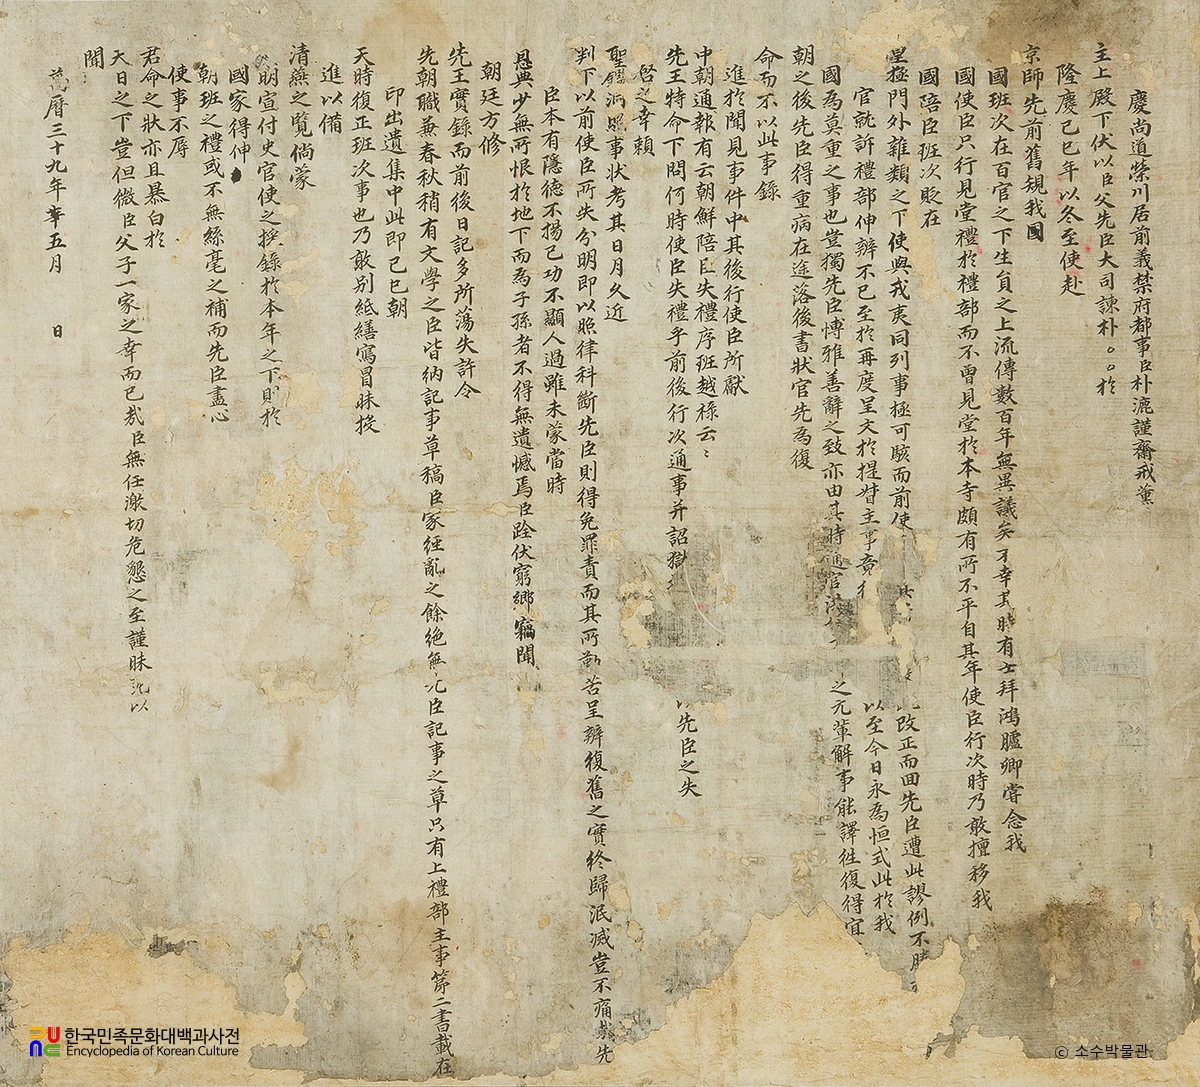 慶尚道榮川居前義禁府都事臣朴漉謹齋戒薰
主上殿下伏以臣父先臣大司諫朴○○於
隆慶己巳年以冬至使赴
京師先前舊規我國
國班次在百官之下生員之上流傳數百年無異議矣不幸其時有士拜鴻臚卿嘗念我
國使臣只行見堂禮於禮部而不曾見堂於本寺頗有所不平自其年使臣行次時乃敢擅移我
國陪臣班次貶在
皇極門外雜類之下使與戎夷同列事極可駭而前使 改正而回先臣遭此謬例不勝
官就訴禮部伸辨不已至於再度呈文於提督主事竟 以至今日永為恒式此於我
國為莫重之事也豈獨先臣愽雅善辭之致亦由其時通官洪 之元輩解事能譯徃復得宜
朝之後先臣得重病在途落後書狀官先為復
命而不以此事錄
進於聞見事件中其後行使臣所獻
中朝通報有云朝鮮陪臣失禮序班越祿云〻
先王特命下問何時使臣失禮乎前後行次通事并詔獄 先臣之失
啓之幸賴
聖鑑洞照事狀考其日月久近
判下以前使臣所失分明即以照律科斷先臣則得免罪責而其所勤苦呈辨復舊之實終歸泯滅豈不痛哉先
臣本有隱德不揚己功不顯人過雖未蒙當時
恩典少無所恨於地下而為子孫者不得無遺憾焉臣跧伏窮鄉竊聞
朝廷方修
先王實錄而前後日記多所蕩失許令
先朝職兼春秋稍有文學之臣皆納記事草稿臣家經亂之餘絶無先臣記事之草只有上禮部主事等二書載在
印出遺集中此即己巳朝
天時復正班次事也乃敢别紙繕寫冒昧投
進以備
清燕之覽倘蒙
明宣付史官使之撰錄於本年之下則於
國家得伸
朝班之禮或不無絲毫之補而先臣盡心
使事不辱
君命之狀亦且暴白於
天日之下豈但微臣父子一家之幸而已哉臣無任激切危懇之至謹昧死以
聞
萬曆三十九年 五月 日
한국민족문화대백과사전
Encyclopedia of Korean Culture
© 소수박물관